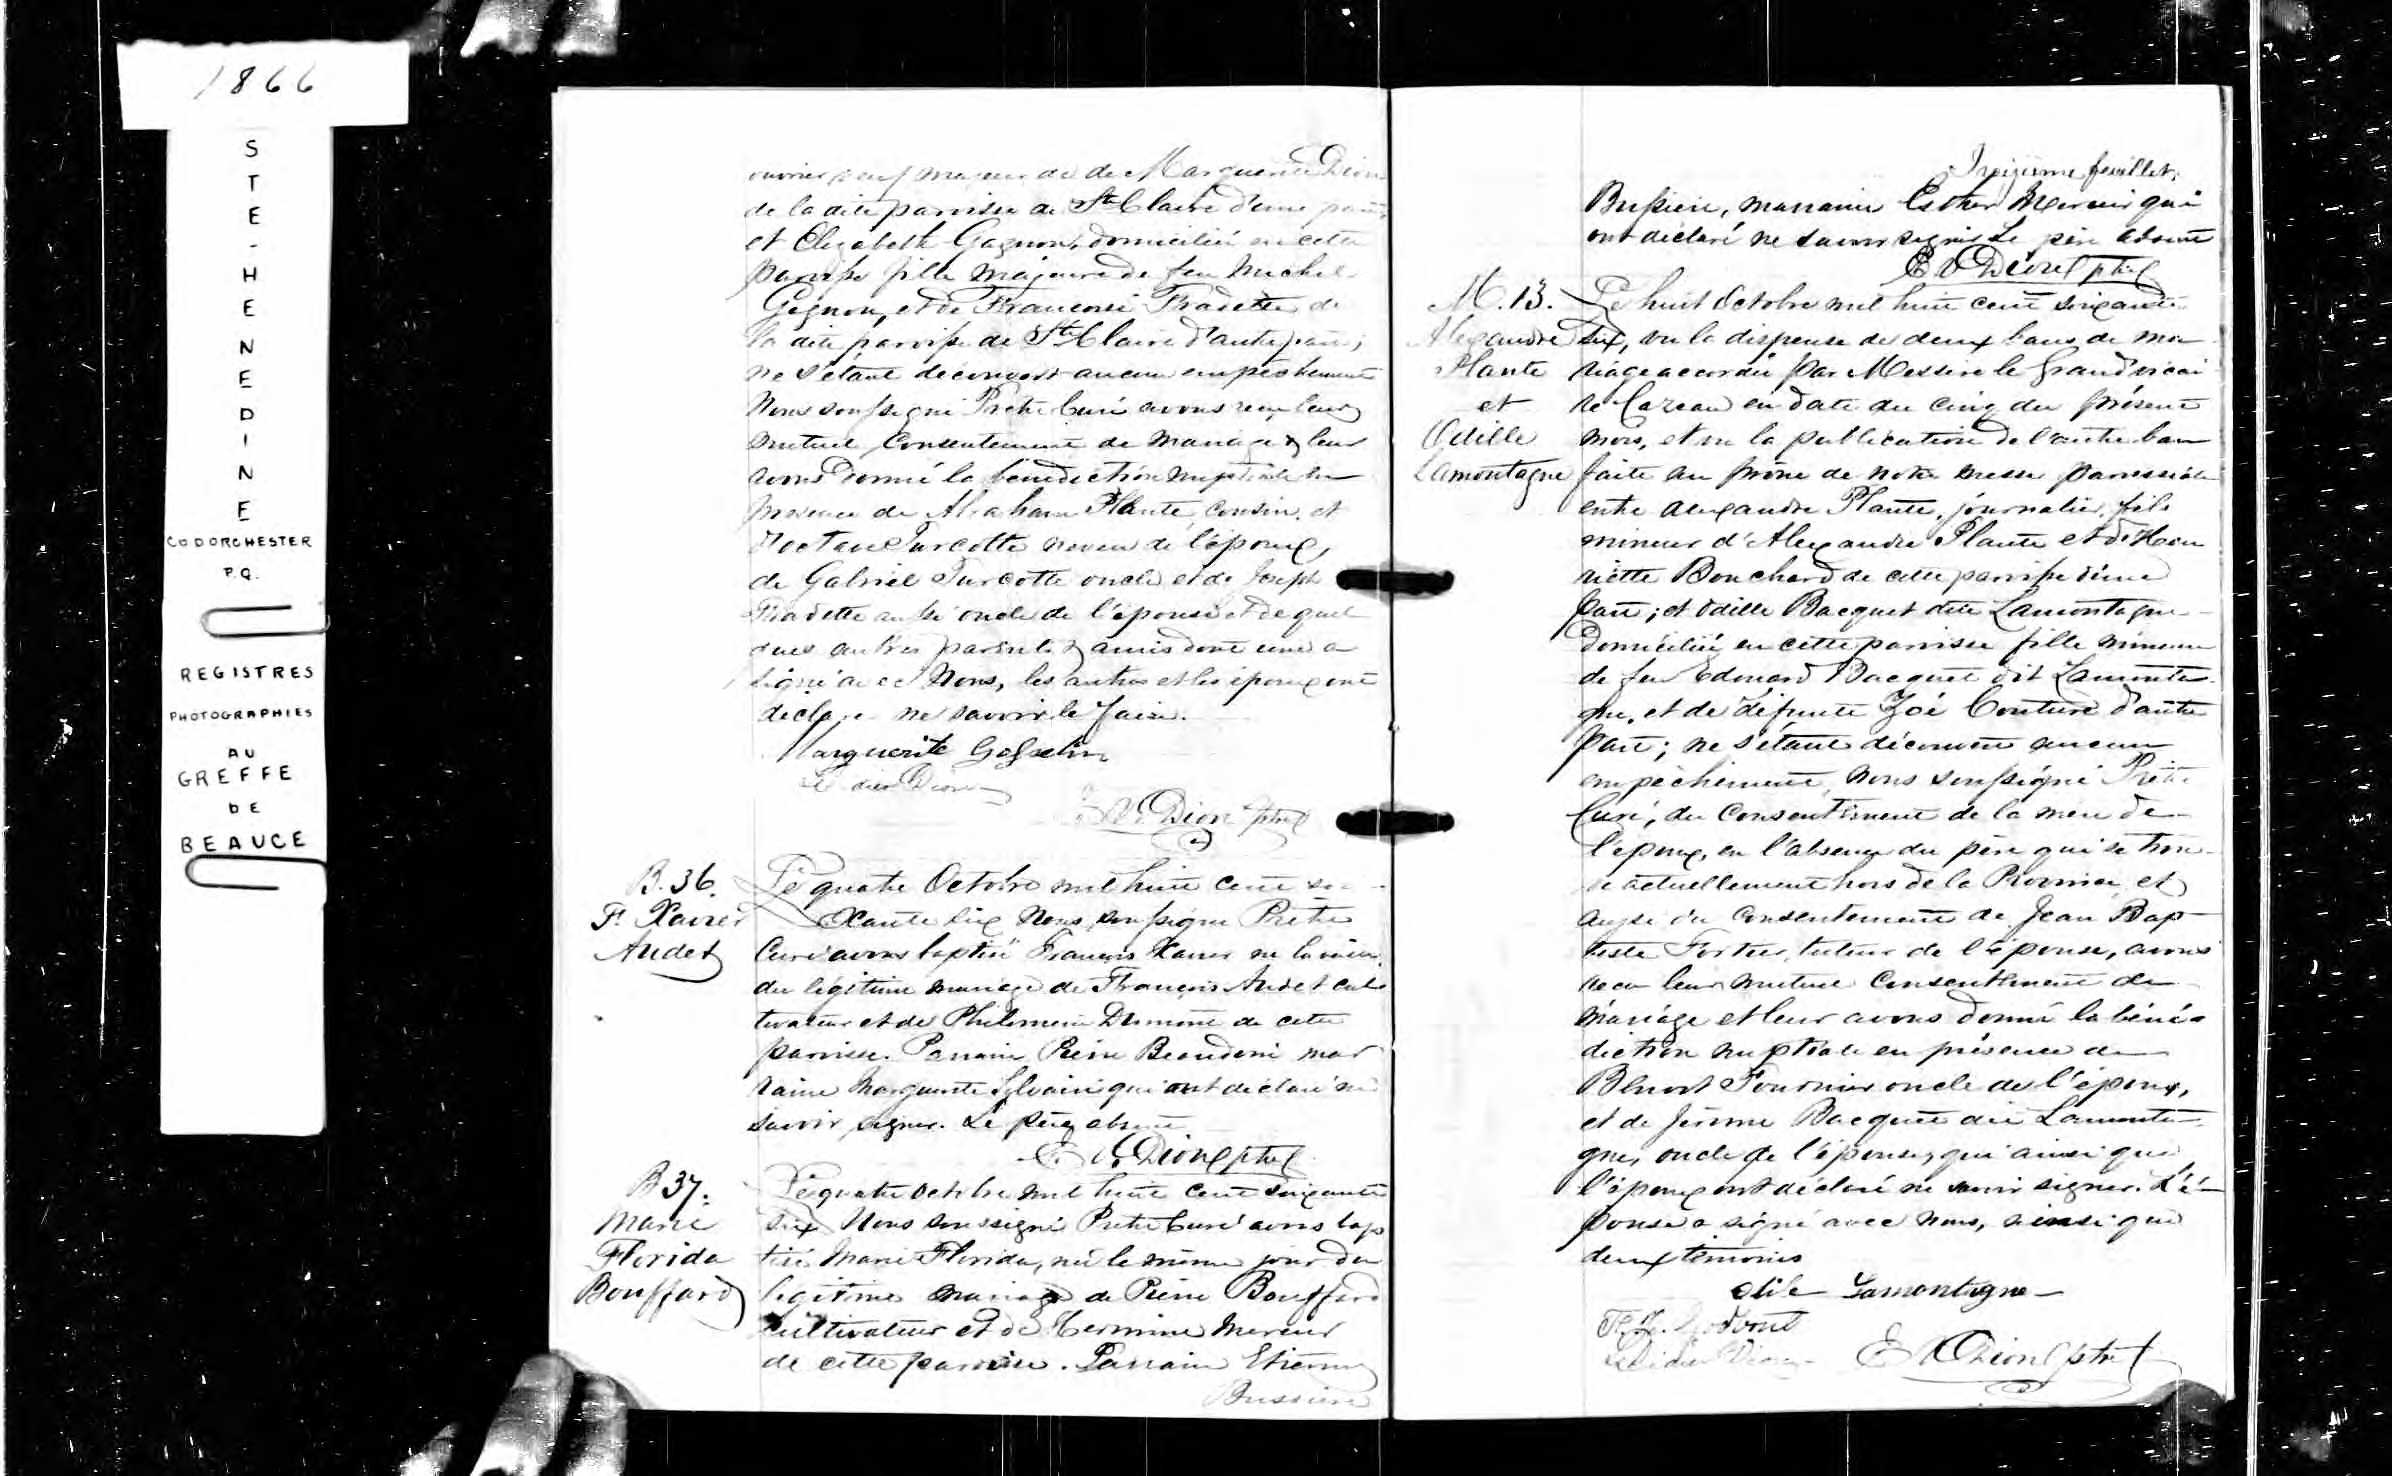 1866
STE-HENEDINE
CO DORCHESTER
P.Q.
REGISTRES
PHOTOGRAPHIES
AU
GREFFE
DE
BEAUCE
ouvrier, veuf majeur de de Marguerite Dion
de la dite paroisse de Ste Claire d'une part,
et Elizabeth Gagnon, domiciliée en cette
paroisse fille majeure de feu Michel
Gagnon, et de Francoise Fradette de
la dite paroisse de Ste Claire d'autre part;
ne s'étant découvert aucun empêchement
Nous soussigné Prêtre Curé avons reçu leur
mutuel Consentement de mariage & leur
avons donné la bénédiction nuptiale en
présence de Abraham Plante, cousin, et
d'octave Turcotte neveu de l'époux,
de Gabriel Turcotte oncle et de Joseph
Fradette aussi oncle de l'épouse et de quel
ques autres parents & amis dont une a
signé avec Nous, les autres et les époux ont
déclaré ne savoir le faire.
Marguerite Gosselin
Dion
E V. Dion ptre
B. 36.
F. Xavier
Audet
Le quatre Octobre mil huit cent soi
xante six Nous soussigné Prêtre
Curé avons baptisé François Xavier né la veille
du légitime mariage de François Audet cul
tivateur et de Philomène Dumont de cette
paroisse. Parrain Pierre Beaudoin mar
raine Marguerite Sylvain qui ont déclaré ne
savoir signer. Le père absent
E V. Dion ptre
B 37.
Marie
Florida
Bouffard
Le quatre octobre mil huit cent soixante
six Nous soussigné Prêtre Curé avons bap
tisé Marie Florida, née le même jour du
légitime mariage de Pierre Bouffard
cultivateur et de Hermine Mercier
de cette paroisse. Parrain Etienne
Bussiere
Treizième feuillet.
Bussière, marraine Esther Mercier qui
ont déclaré ne savoir signer Le père absent
E V Dion ptre
M. 13.
Alexandre
Plante
et
Odille
Lamontagne
Le huit Octobre mil huit cent soixante
six, vu la dispense de deux bans de ma
riage accordée par Messire le Grand vicai
re Cazeau en date du cinq du présent
mois, et vu la publication de l'autre ban
faite au prône de notre messe paroissiale
entre Alexandre Plante, journalier, fils
mineur d'Alexandre Plante et de Hen
riette Bouchard de cette paroisse d'une
part; et Odille Bacquet dite Lamontagne
domiciliée en cette paroisse fille mineure
de feu Edouard Bacquet dit Lamonta
gne, et de défunte Zoé Couture d'autre
part; ne s'étant découvert aucun
empêchement, Nous soussigné Prêtre
Curé, du Consentement de la mère de
l'époux, en l'absence du père qui se trou
ve actuellement hors de la Province, et
aussi du Consentement de Jean Bap
tiste Fortier, tuteur de l'épouse, avons
reçu leur mutuel Consentement de
mariage et leur avons donné la béné
diction nuptiale en présence de
Benoit Fournier oncle de l'époux,
et de Jérome Bacquet dit Lamonta
gne, oncle de l'épouse, qui ainsi que
l'époux ont déclaré ne savoir signer. L'é
pouse a signé avec Nous, ainsi que
deux témoins
Lamontagne
Dion
E V Dion ptre